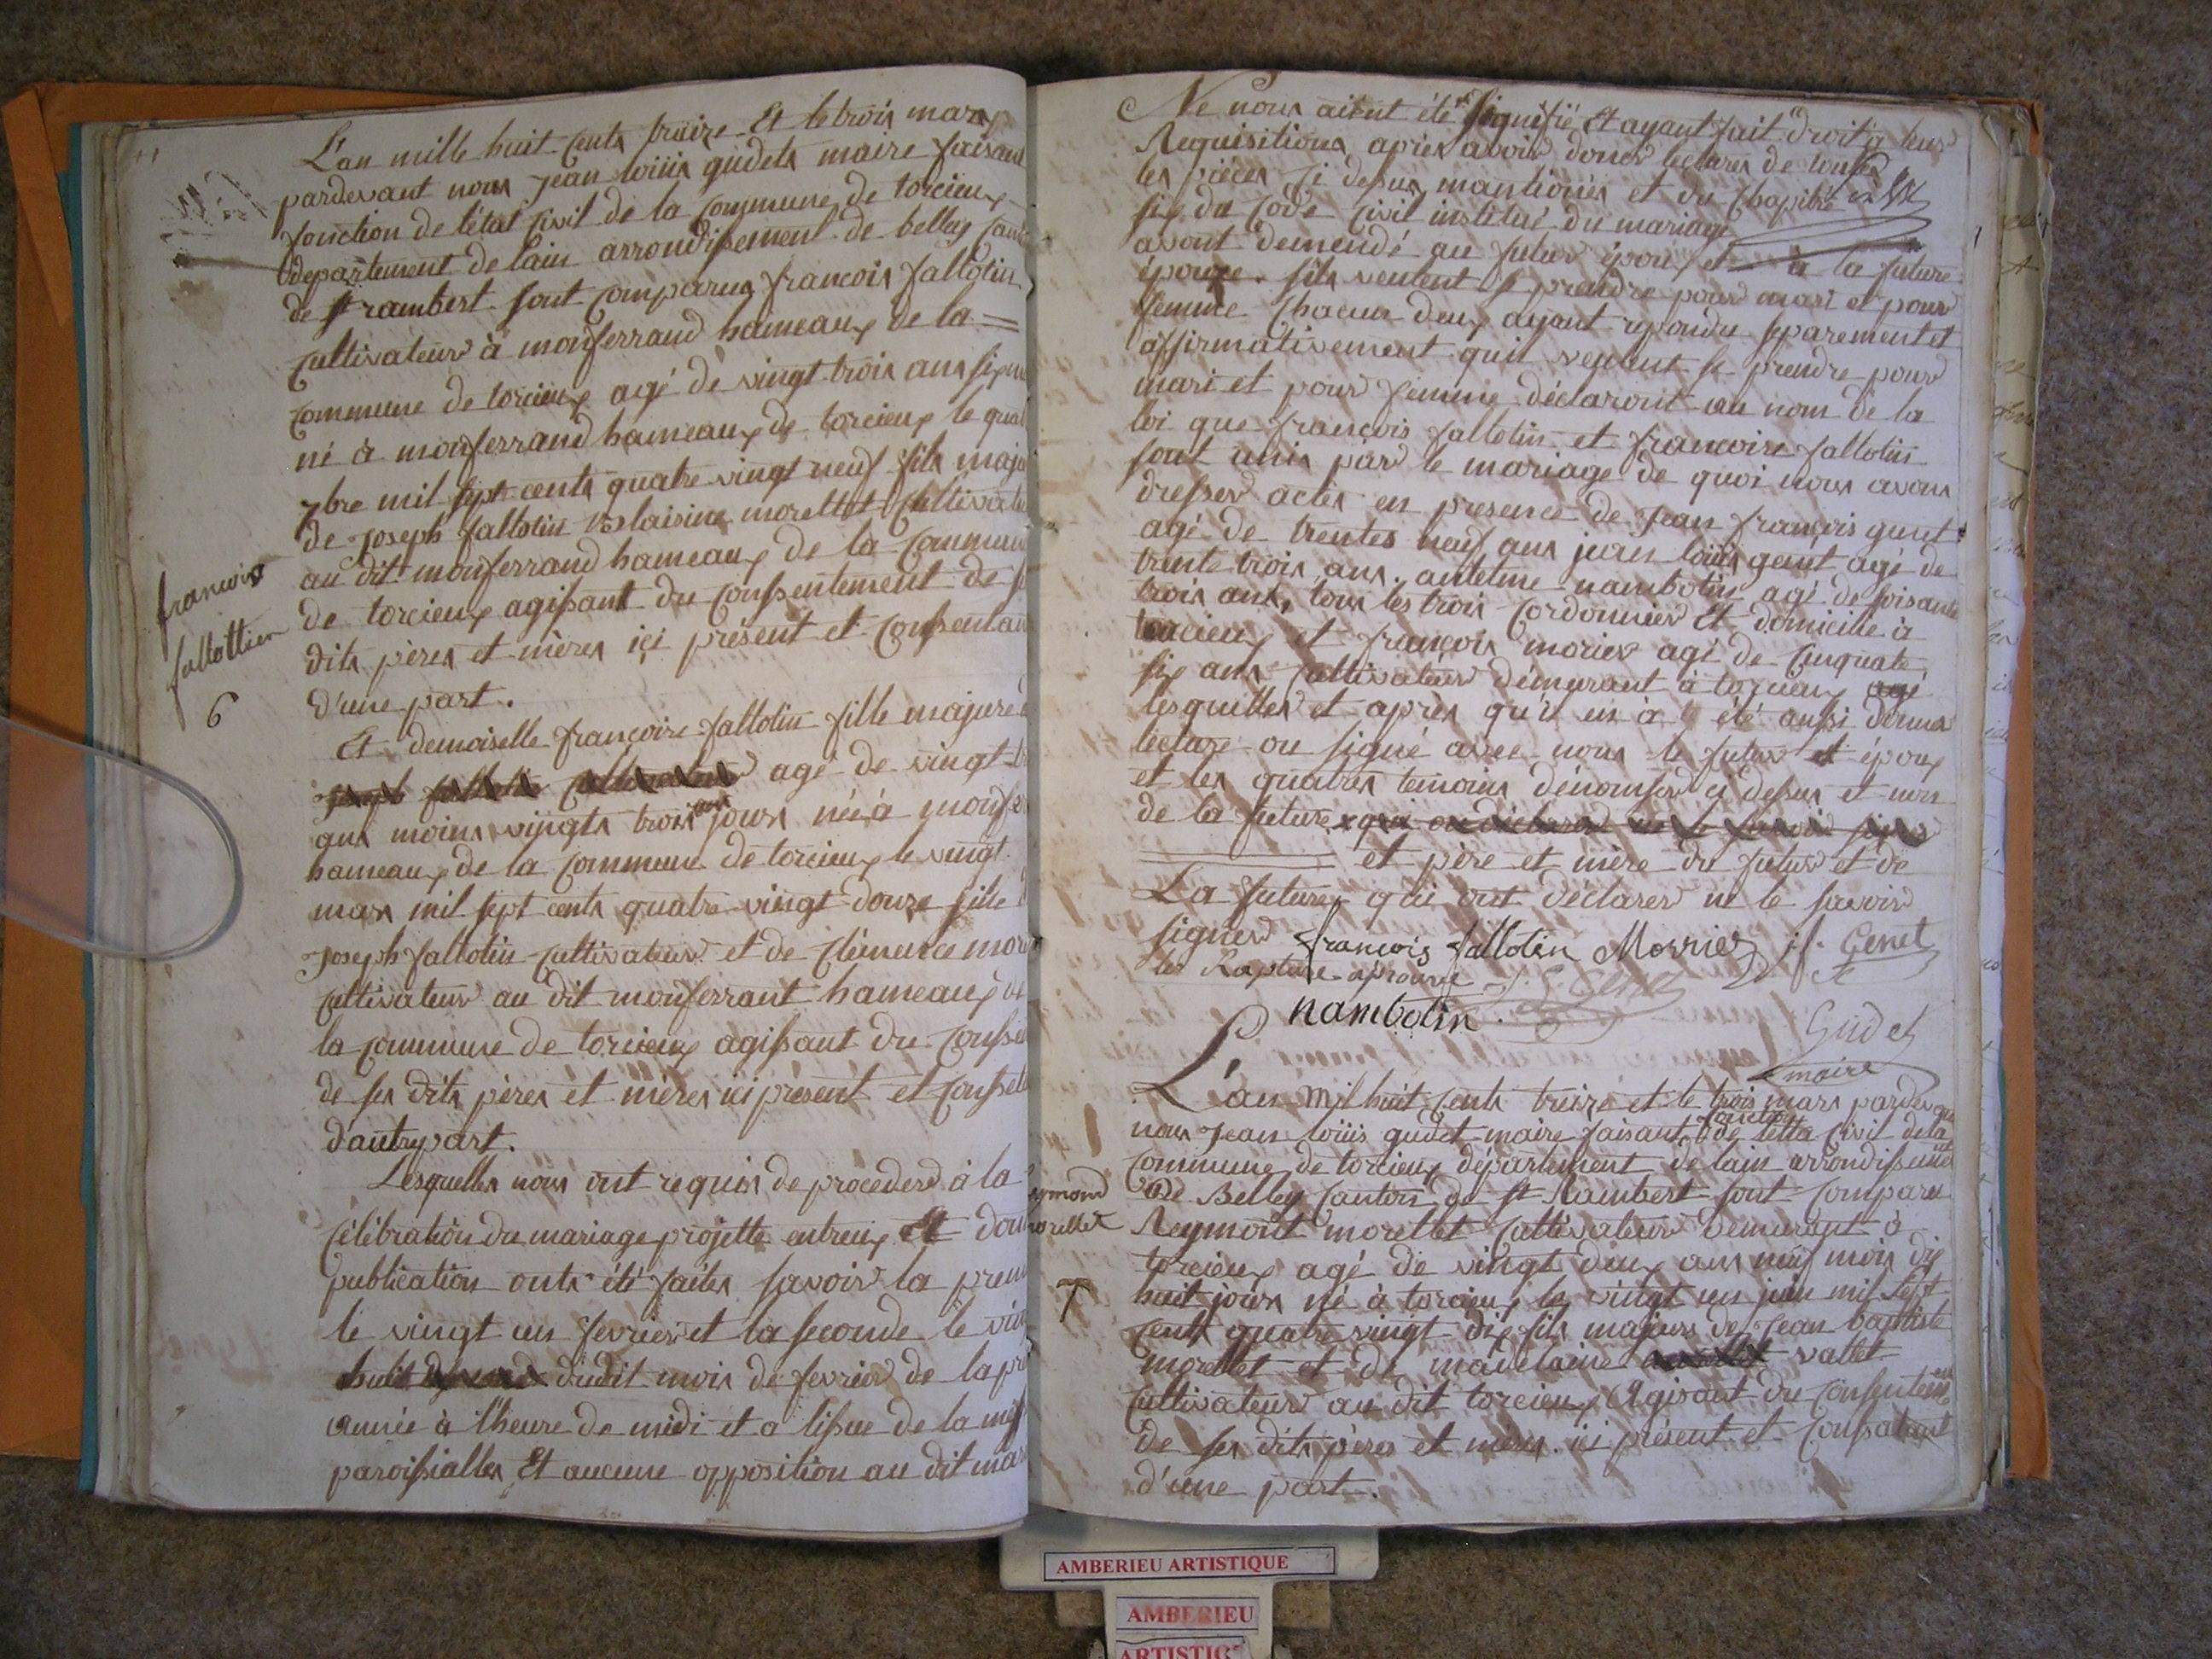 L'an mille huit cents traize Et le trois mars
pardevant nous Jean loüis gudets maire faisant
fonction de l'état Civil de la Commune de torcieux
departement de lain arrondissement de belley Cant
de st rambert sont Comparus francois fallotin
Cultivateur à monferrand haimeaux de la =
Commune de torcieux agé de vingt trois ans six m
né à monferrand hameaux de torcieux le quat
7bre mil sept cents quatre vingt neuf fils maje
de Joseph fallotin Blaisine morettet Cultivate
au dit monferrand hameaux de la Commune
de torcieux agissant du Conssentement de s
dits pères et mères içi présent et Consentan
d'une part.
francois
fallottien
6
Et demoiselle françoise fallotin fille majure
agé de vingt
que moins vingts trois jours née à monfer
hameaux de la Commune de torcieux le vingt
mars mil sept cents quatre vingt douze fille
Joseph fallotin Cultivateur et de Clémence mor
Cultivateur au dit monferrant hameaux de
la Commune de torcieux agissant du Consse
de ses dits pères et mères ici présent et Conssete
d'autre part.
Lesquelles nous ont requis de proceder à la
Célébration du mariage projetté entreux Et dont
publication onts été faites savoir la prem
le vingt un fevrier et la seconde le vin
huit dudit mois de fevrier de la pr
année à l'heure de midi et a lissue de la mess
paroissialles Et aucune opposition au dit mar
Ne nous aient été signifié Et ayant fait droit à leur
Requisitions après avoir doner lectures de toutes
les pièces Ci desus mantionés et du Chapitre
six du Code Civil institué du mariage
avont demendé au futur époux et à la future
épouze sils veulent se prendre pour mari et pour
femme Chacun deux ayant repondu separement et
affirmativement quil veulent se prendre pour
mari et pour femme déclaront au nom de la
loi que françois fallotin et francoise fallotin
sont unis par le mariage de quoi nous avons
dresser actes en presence de Jean françois genet
agé de trentes neuf ans jean loüis genet agé de
trente trois ans. antelme nambotin agé de soisante
trois ans, tous les trois Cordonnier Et domicilié à
torcieux et françois morier agé de Cinquate
six ans Cultivateur demeurant à torcieux agé
lesquelles et après qu'il en à été aussi donné
lecture on signé avec nous le futur et époux
et les quatres temoins dénomser ci desus et non
de la future
et père et mère du futur et de
La future qui ont déclarer ne le savoir
signer françois fallotin Morrier jf. Genet
les Rapture aprouvé J. L. Genet
nambotin
Gudet
maire
L'an mil huit cents treize et le trois mars pardevant
nous Jean loüis gudet maire faisant fonction de letta Civil dela
Commune de torcieux département de lain arrondissement
De Belley Canton de st Rambert sont Comparu
Reymont morellet Cultivateur demurant à
torcieux agé de vingt deux ans neuf mois dix
huit jours né à torcieux le vingt un juin mil sept
Cents quatre vingt dix fils majeur de Jean baptiste
morellet et de madelaine vallet
Cultivateur au dit torcieux Agisant du Consentement
de ses dits pères et mères ici présent et Conssatant
d'une part.
ymond
orellet
7
AMBERIEU ARTISTIQUE
AMBERIEU
ARTISTIQ